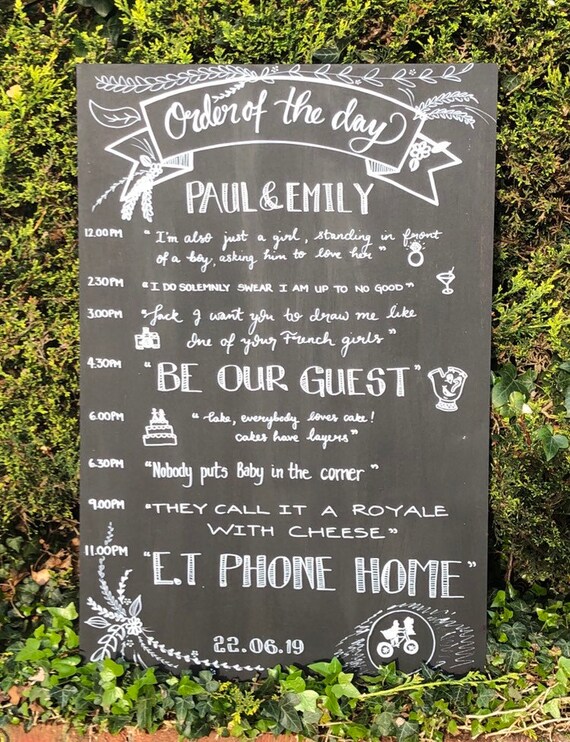 Order of the day
PAUL & EMILY
12.00PM "I'm also just a girl, standing in front
of a boy, asking him to love her"
2.30PM "I DO SOLEMNLY SWEAR I AM UP TO NO GOOD"
3.00PM "Jack I want you to draw me like
one of your French girls"
4.30PM "BE OUR GUEST"
6.00PM "Cake, everybody loves cake!
cakes have layers"
6.30PM "Nobody puts Baby in the corner"
9.00PM "THEY CALL IT A ROYALE
WITH CHEESE"
11.00PM "E.T PHONE HOME"
22.06.19